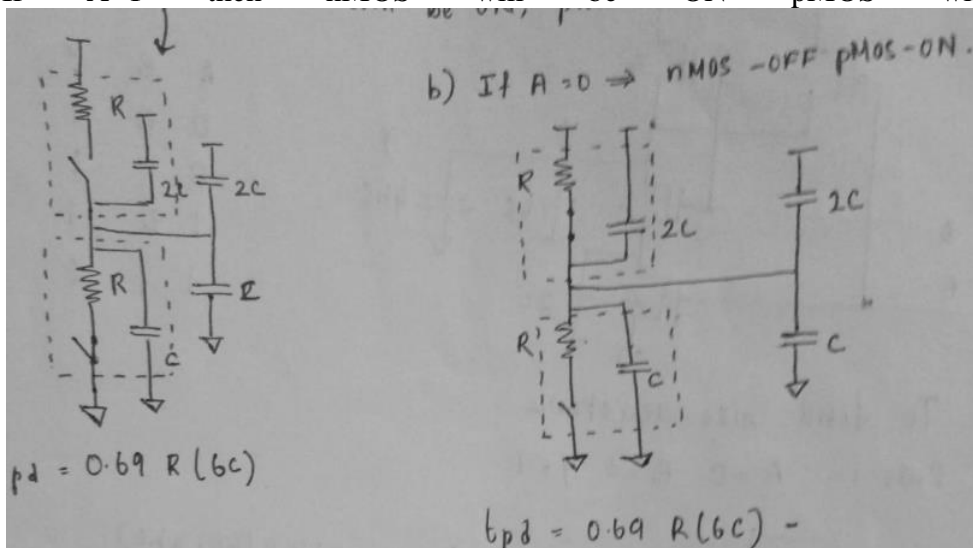 b) If A=0 ⇒ nMOS -OFF pMOS-ON.
R
2C
2C
R
C
pd = 0.69 R(6C)
R
2C
2C
R
C
C
tpd = 0.69 R(6C) -